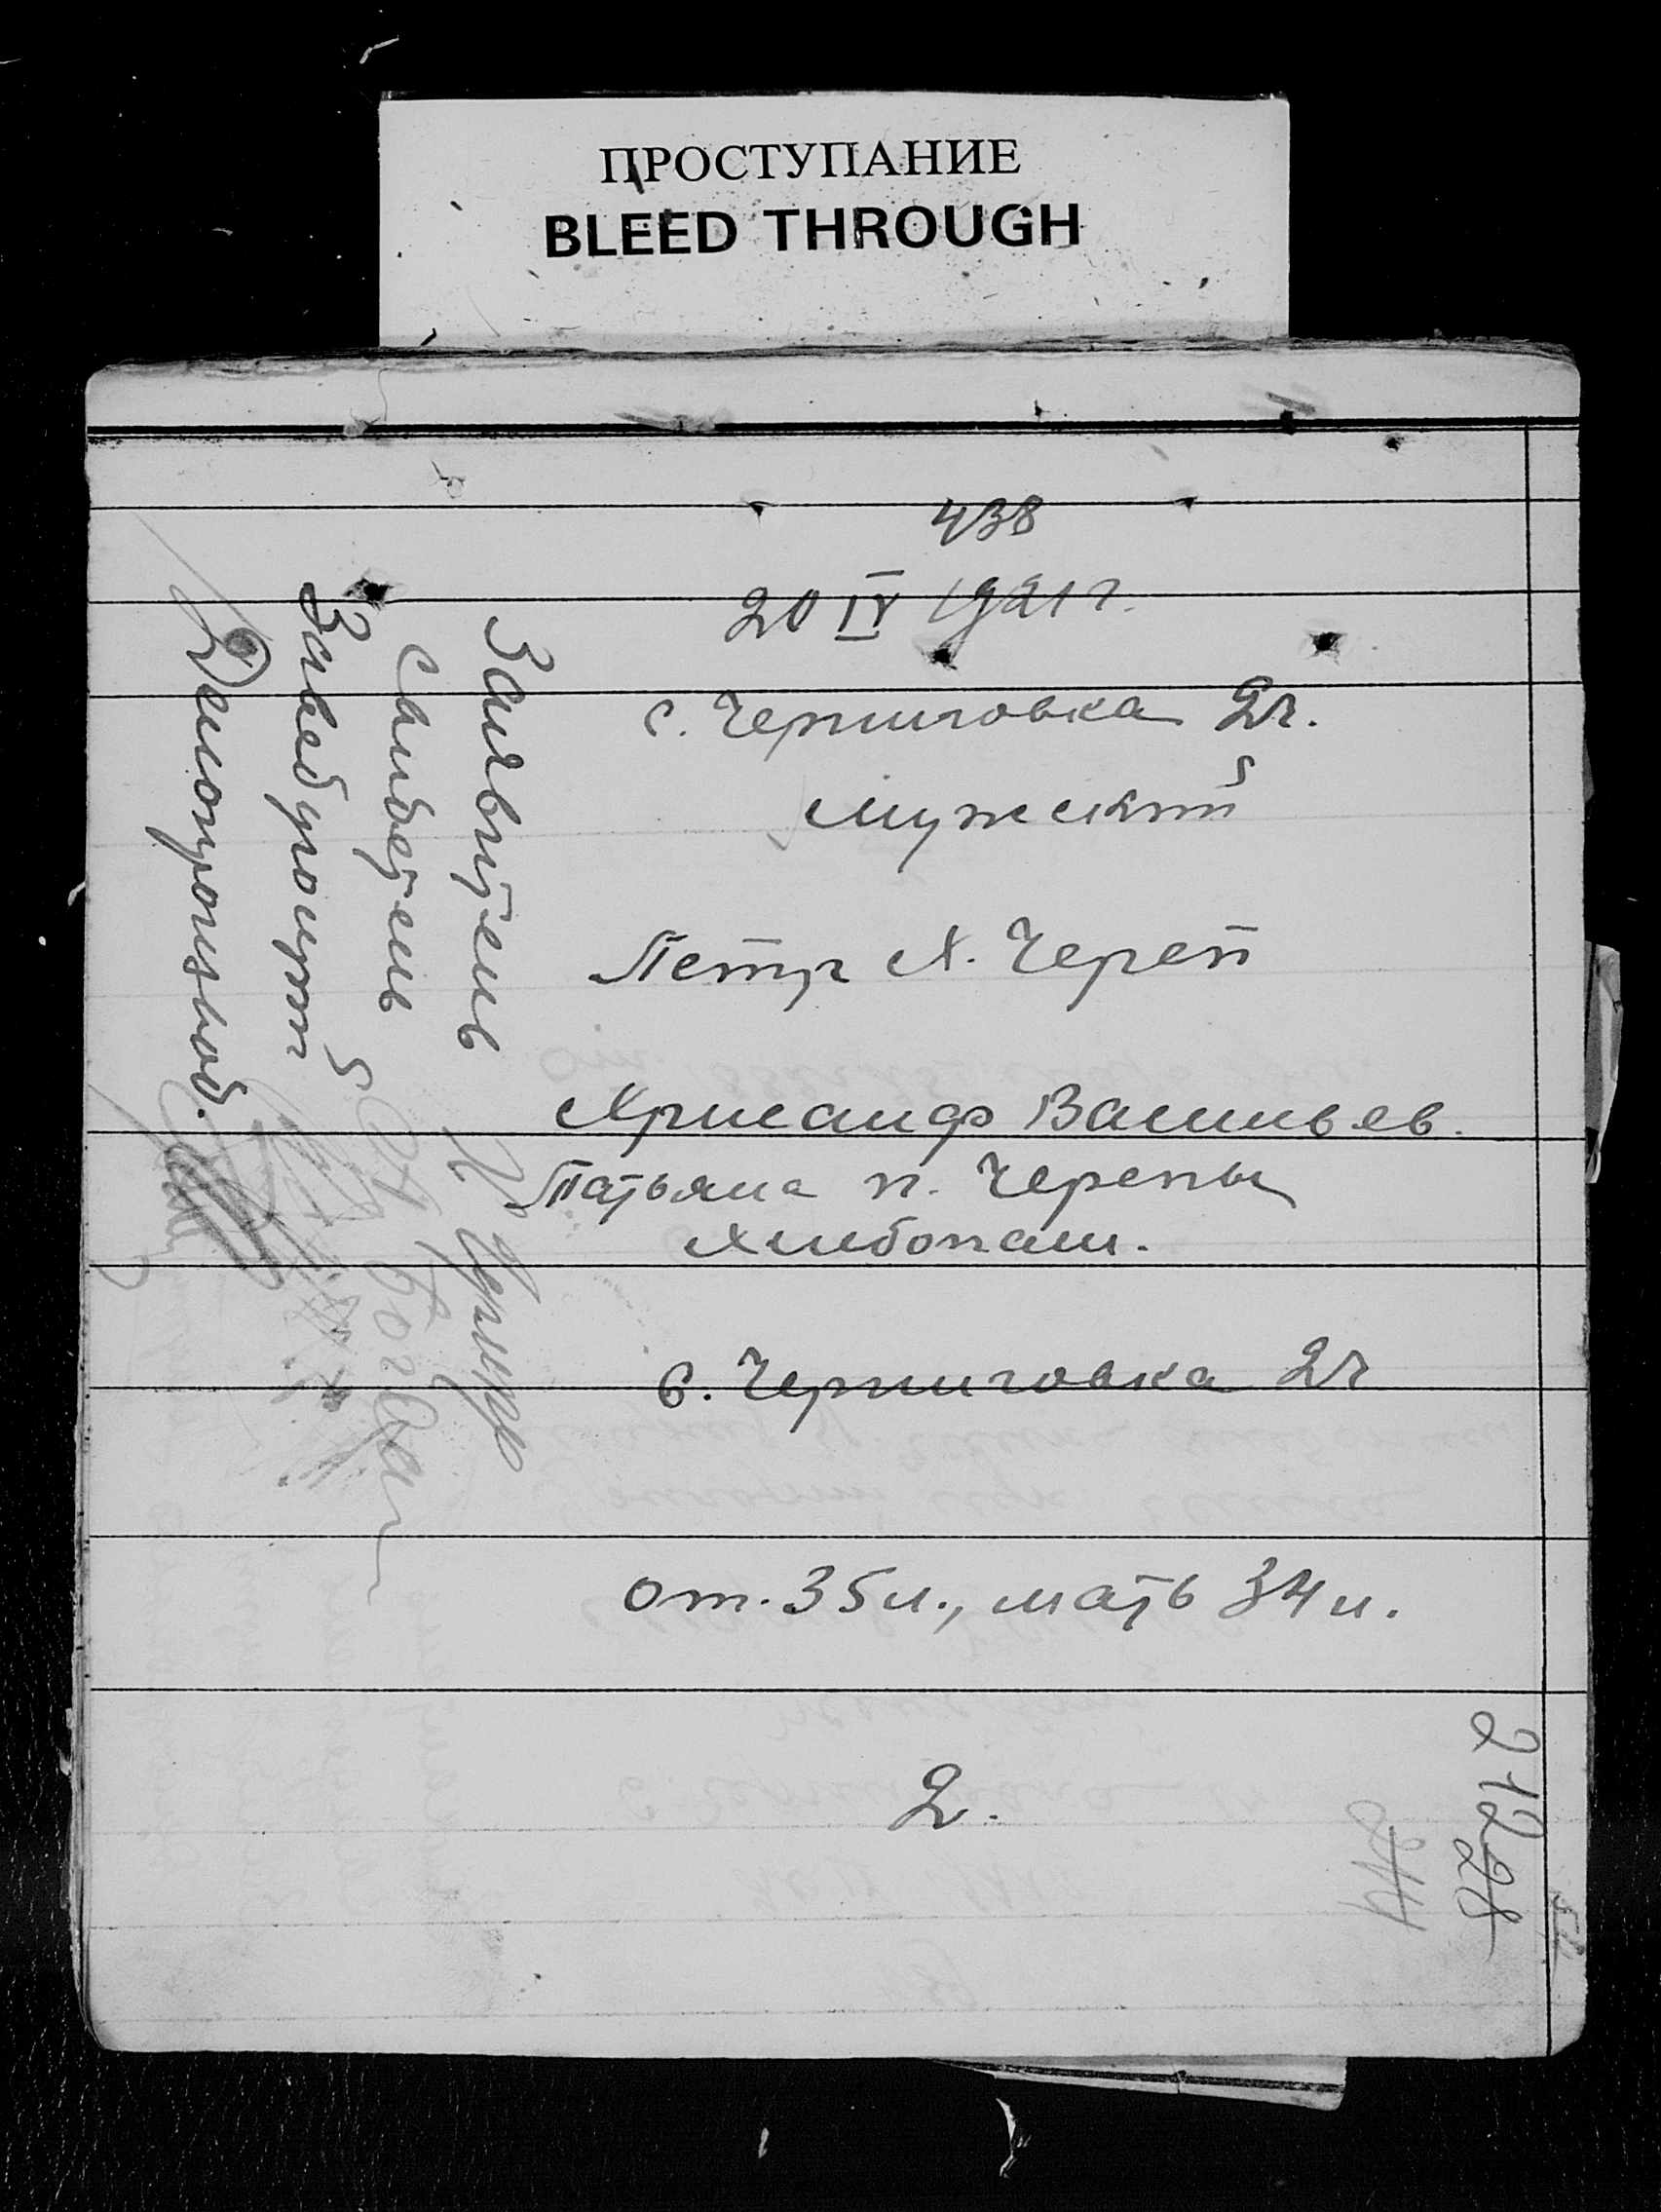 ПРОСТУПАНИЕ
BLEED THROUGH
438
20 IV 1921 г.
с. Черниговка 2ч.
мужский
Петр Х. Череп
Хрисанф Васильев.
Татьяна п. Черепы
хлебопаш.
с. Черниговка 2ч
от. 35 л., мать 34 л.
2.
Заявитель
Свидетель
Богдан
Заведующий
Делопроизвод.
212
28